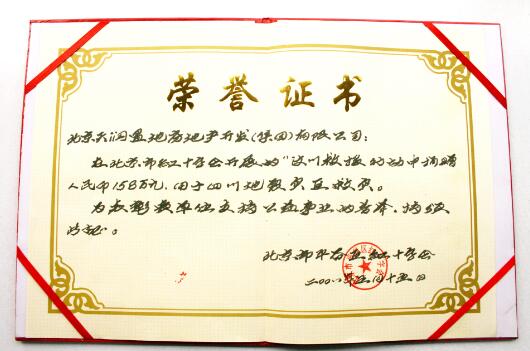 荣誉证书
北京天润置地房地产开发(集团)有限公司：
在北京市红十字会开展的"汶川救援"行动中捐赠
人民币158万元，用于四川地震灾区救灾。
为表彰贵单位支持公益事业的善举，特颁
此证。
北京市 区红十字会
二〇〇八年五月十五日